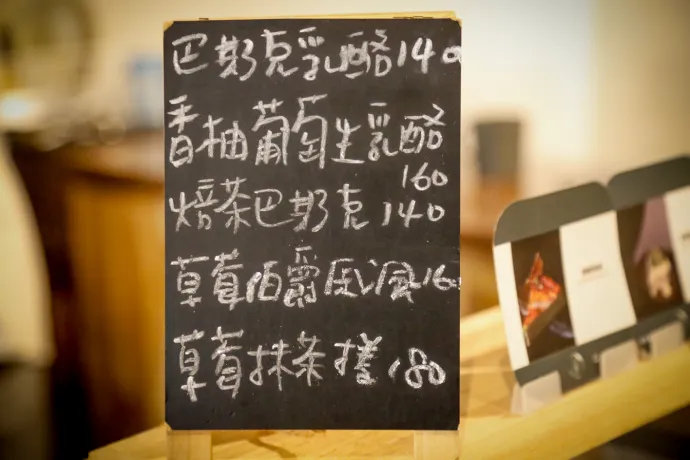 巴斯克乳酪140
香柚葡萄生乳酪
160
焙茶巴斯克140
草莓伯爵戚風160
草莓抹茶捲180